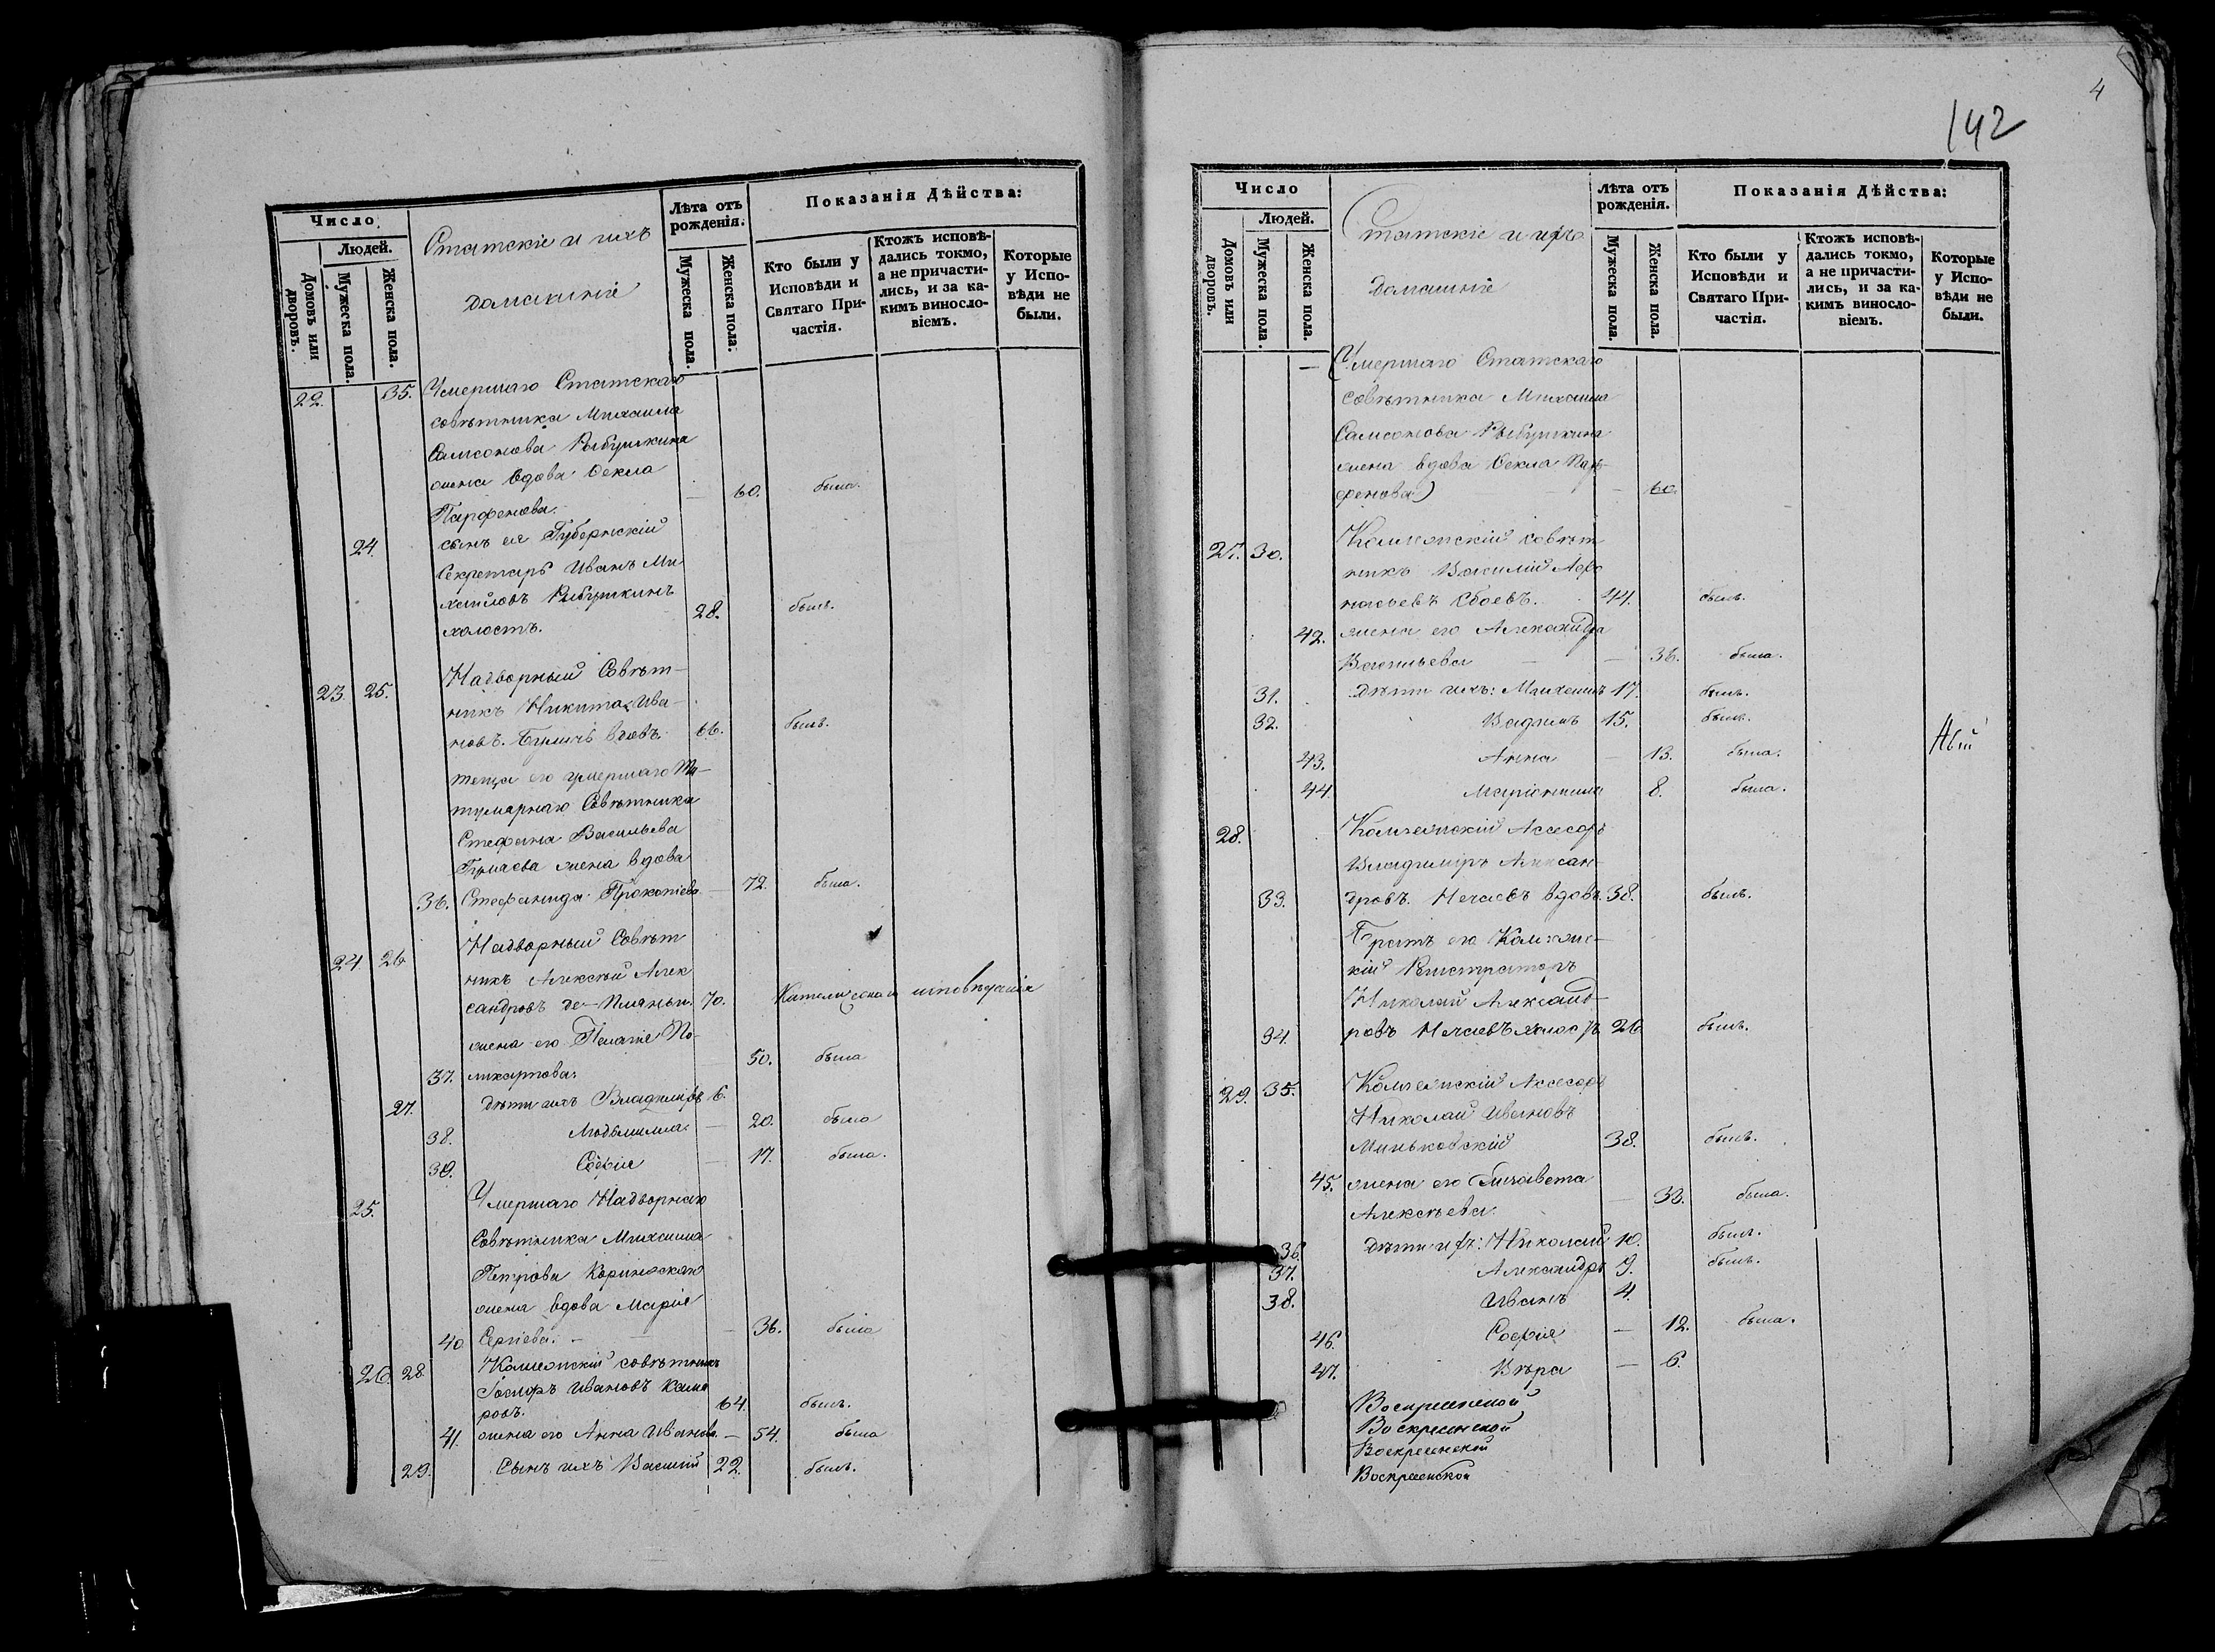 4
142
Число
Людей.
Домовъ или дворовъ.
Мужеска пола.
Женска пола.
Статскіе и ихъ
домашніе
Лѣта отъ рожденія.
Мужеска пола.
Женска пола.
Показанія Дѣйства:
Кто были у Исповѣди и Святаго Причастія.
Ктожъ исповѣдались токмо, а не причастились, и за какимъ винословіемъ.
Которые у Исповѣди не были.
22. 35. Умершаго Статскаго
совѣтника Михаила
Самсонова Рыбушкина
жена вдова Ѳекла
Парфенова. — 60. была.
24. сынъ ея Губернскій
Секретарь Иванъ Ми-
хайловъ Рыбушкинъ
холостъ. 28. былъ.
23. 25. Надворный Совѣт-
никъ Никита Ива-
новъ вдовъ. 66. былъ.
теща его умершаго Ти-
тулярнаго Совѣтника
Стефана Васильева
жена вдова
36. Стефанида Прокопіева — 72. была.
24. 26. Надворный Совѣт
никъ Алексѣй Алек
сандровъ де- 70. Католическаго исповѣданія
жена его Пелагіе По-
37. ликарпова. 50. была
27. дѣти ихъ Владиміръ 6.
38. Людмилла — 20. была
39. Софія — 17. была.
25. Умершаго Надворнаго
Совѣтника Михаила
Петрова Коринфскаго
жена вдова Марія
40 Сергіева. — — 36. была
26. 28. Коллежскій совѣтникъ
Ивановъ Кома
ровъ. 64. былъ.
41. жена его Анна Иванова — 54. была
29. Сынъ ихъ Василій 22. былъ.
Число
Людей.
Домовъ или дворовъ.
Мужеска пола.
Женска пола.
Статскіе и ихъ
домашніе
Лѣта отъ рожденія.
Мужеска пола.
Женска пола.
Показанія Дѣйства:
Кто были у Исповѣди и Святаго Причастія.
Ктожъ исповѣдались токмо, а не причастились, и за какимъ винословіемъ.
Которые у Исповѣди не были.
— (Умершаго Статскаго
совѣтника Михаила
Самсонова Рыбушкина
жена вдова Ѳекла Пар-
фенова) — — 60.
27. 30. Коллежскій совѣт
никъ Василій Афо
насьевъ Сбоевъ. 44. былъ.
42. жена его Александра
Васильева — — 36. была.
31. дѣти ихъ: Михаилъ 17. былъ.
32. Вадимъ 15. былъ.
43. Анна — 13. была.
44. Маріонилла 8. была.
28. Коллежскій Ассесоръ
Владиміръ Алексан-
33. дровъ Нечаевъ вдовъ. 38. былъ.
Братъ его Коллежс-
кій Регистраторъ
Николай Александ-
34. ровъ Нечаевъ холостъ 26 былъ.
29. 35. Коллежскій Ассесоръ
Николай Ивановъ
Миньковскій 38. былъ.
45. жена его Елисавета
Алексѣева. — 33. была.
36. дѣти ихъ: Николай 10. былъ.
37. Александръ 9. былъ.
38. Иванъ 4.
46. Софія — 12. была.
47. Вѣра — 6.
Воскресенской
Воскресенской
Воскресенской
Воскресенской